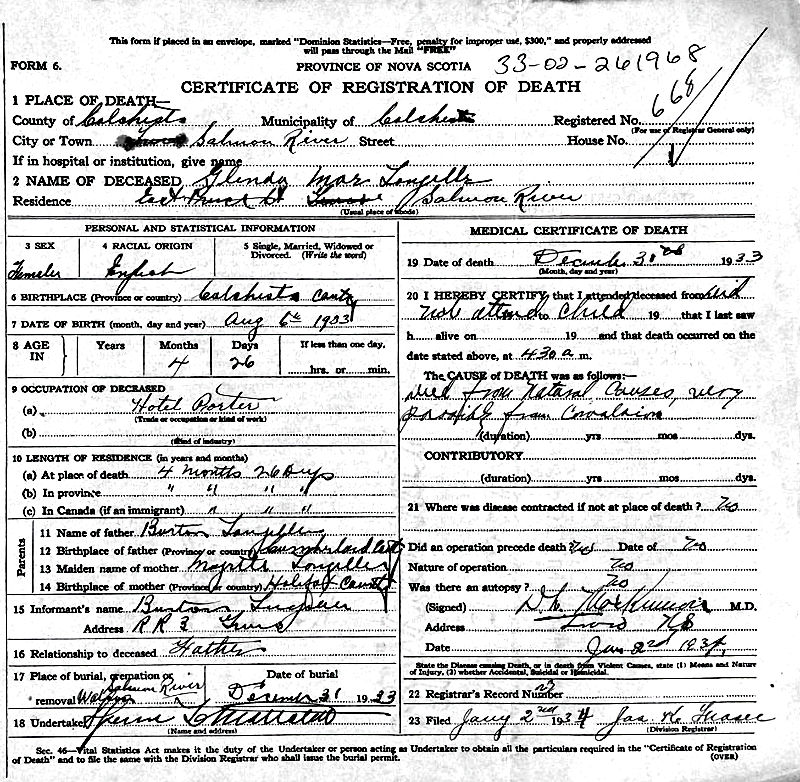 This form if placed in an envelope, marked "Dominion Statistics—Free, penalty for improper use, $300," and properly addressed
will pass through the Mail "FREE"
FORM 6.
PROVINCE OF NOVA SCOTIA
33-02-261968
CERTIFICATE OF REGISTRATION OF DEATH
668
1 PLACE OF DEATH—
County of Colchester Municipality of Colchester Registered No.
(For use of Registrar General only)
City or Town Salmon River Street House No.
If in hospital or institution, give name
2 NAME OF DECEASED Glenda Mae Langille
Residence Salmon River
(Usual place of abode)
PERSONAL AND STATISTICAL INFORMATION
3 SEX 4 RACIAL ORIGIN 5 Single, Married, Widowed or
Divorced. (Write the word)
Female English
6 BIRTHPLACE (Province or country) Colchester County
7 DATE OF BIRTH (month, day and year) Aug 6th 1933
8 AGE IN Years Months Days If less than one day,
4 26 hrs. or min.
9 OCCUPATION OF DECEASED
(a) Hotel Porter
(Trade or occupation or kind of work)
(b)
(Kind of industry)
10 LENGTH OF RESIDENCE (in years and months)
(a) At place of death 4 months 26 Days
(b) In province " " " "
(c) In Canada (if an immigrant) " " "
Parents
11 Name of father Burton Langille
12 Birthplace of father (Province or country) Cumberland Cty
13 Maiden name of mother Langille
14 Birthplace of mother (Province or country) Halifax County
15 Informant's name Burton Langille
Address R R 3 Truro
16 Relationship to deceased Father
17 Place of burial, cremation or Date of burial
removal Salmon River December 31 1933
18 Undertaker
(Name and address)
MEDICAL CERTIFICATE OF DEATH
19 Date of death December 31st 1933
(Month, day and year)
20 I HEREBY CERTIFY that I attended deceased from did
not attend to Child 19 that I last saw
h alive on 19 and that death occurred on the
date stated above, at 4 30 a m.
The CAUSE of DEATH was as follows:—
Died from Natural Causes, very
from
(duration) yrs mos dys.
CONTRIBUTORY
(duration) yrs mos dys.
21 Where was disease contracted if not at place of death? no
Did an operation precede death? no Date of no
Nature of operation no
Was there an autopsy? no
(Signed) M.D.
Address Truro NS
Date Jan 2nd 1934
State the Disease causing Death, or in death from Violent Causes, state (1) Means and Nature
of Injury, (2) whether Accidental, Suicidal or Homicidal.
22 Registrar's Record Number 23
23 Filed Jany 2nd 1934 Jas Fraser
(Division Registrar)
Sec. 46—Vital Statistics Act makes it the duty of the Undertaker or person acting as Undertaker to obtain all the particulars required in the "Certificate of Registration
of Death" and to file the same with the Division Registrar who shall issue the burial permit. (OVER)